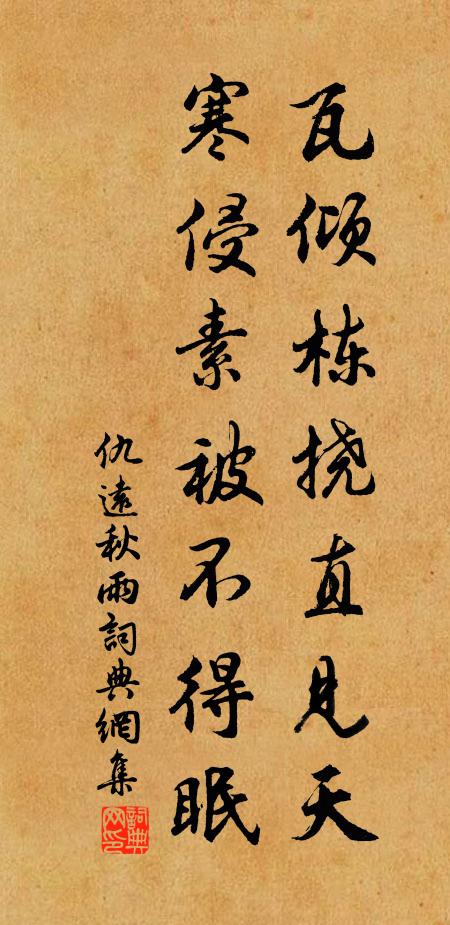 瓦倾栋挠直见天
寒侵素被不得眠
仇遠秋雨詞典網集
詞典网印